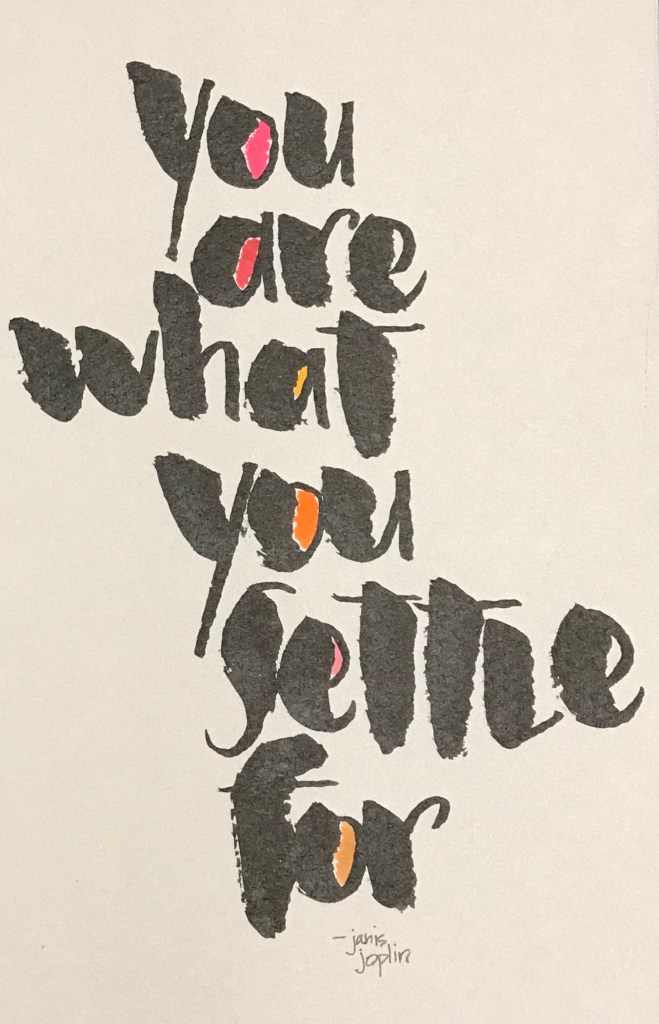 you
are
what
you
settle
for
- janis
joplin